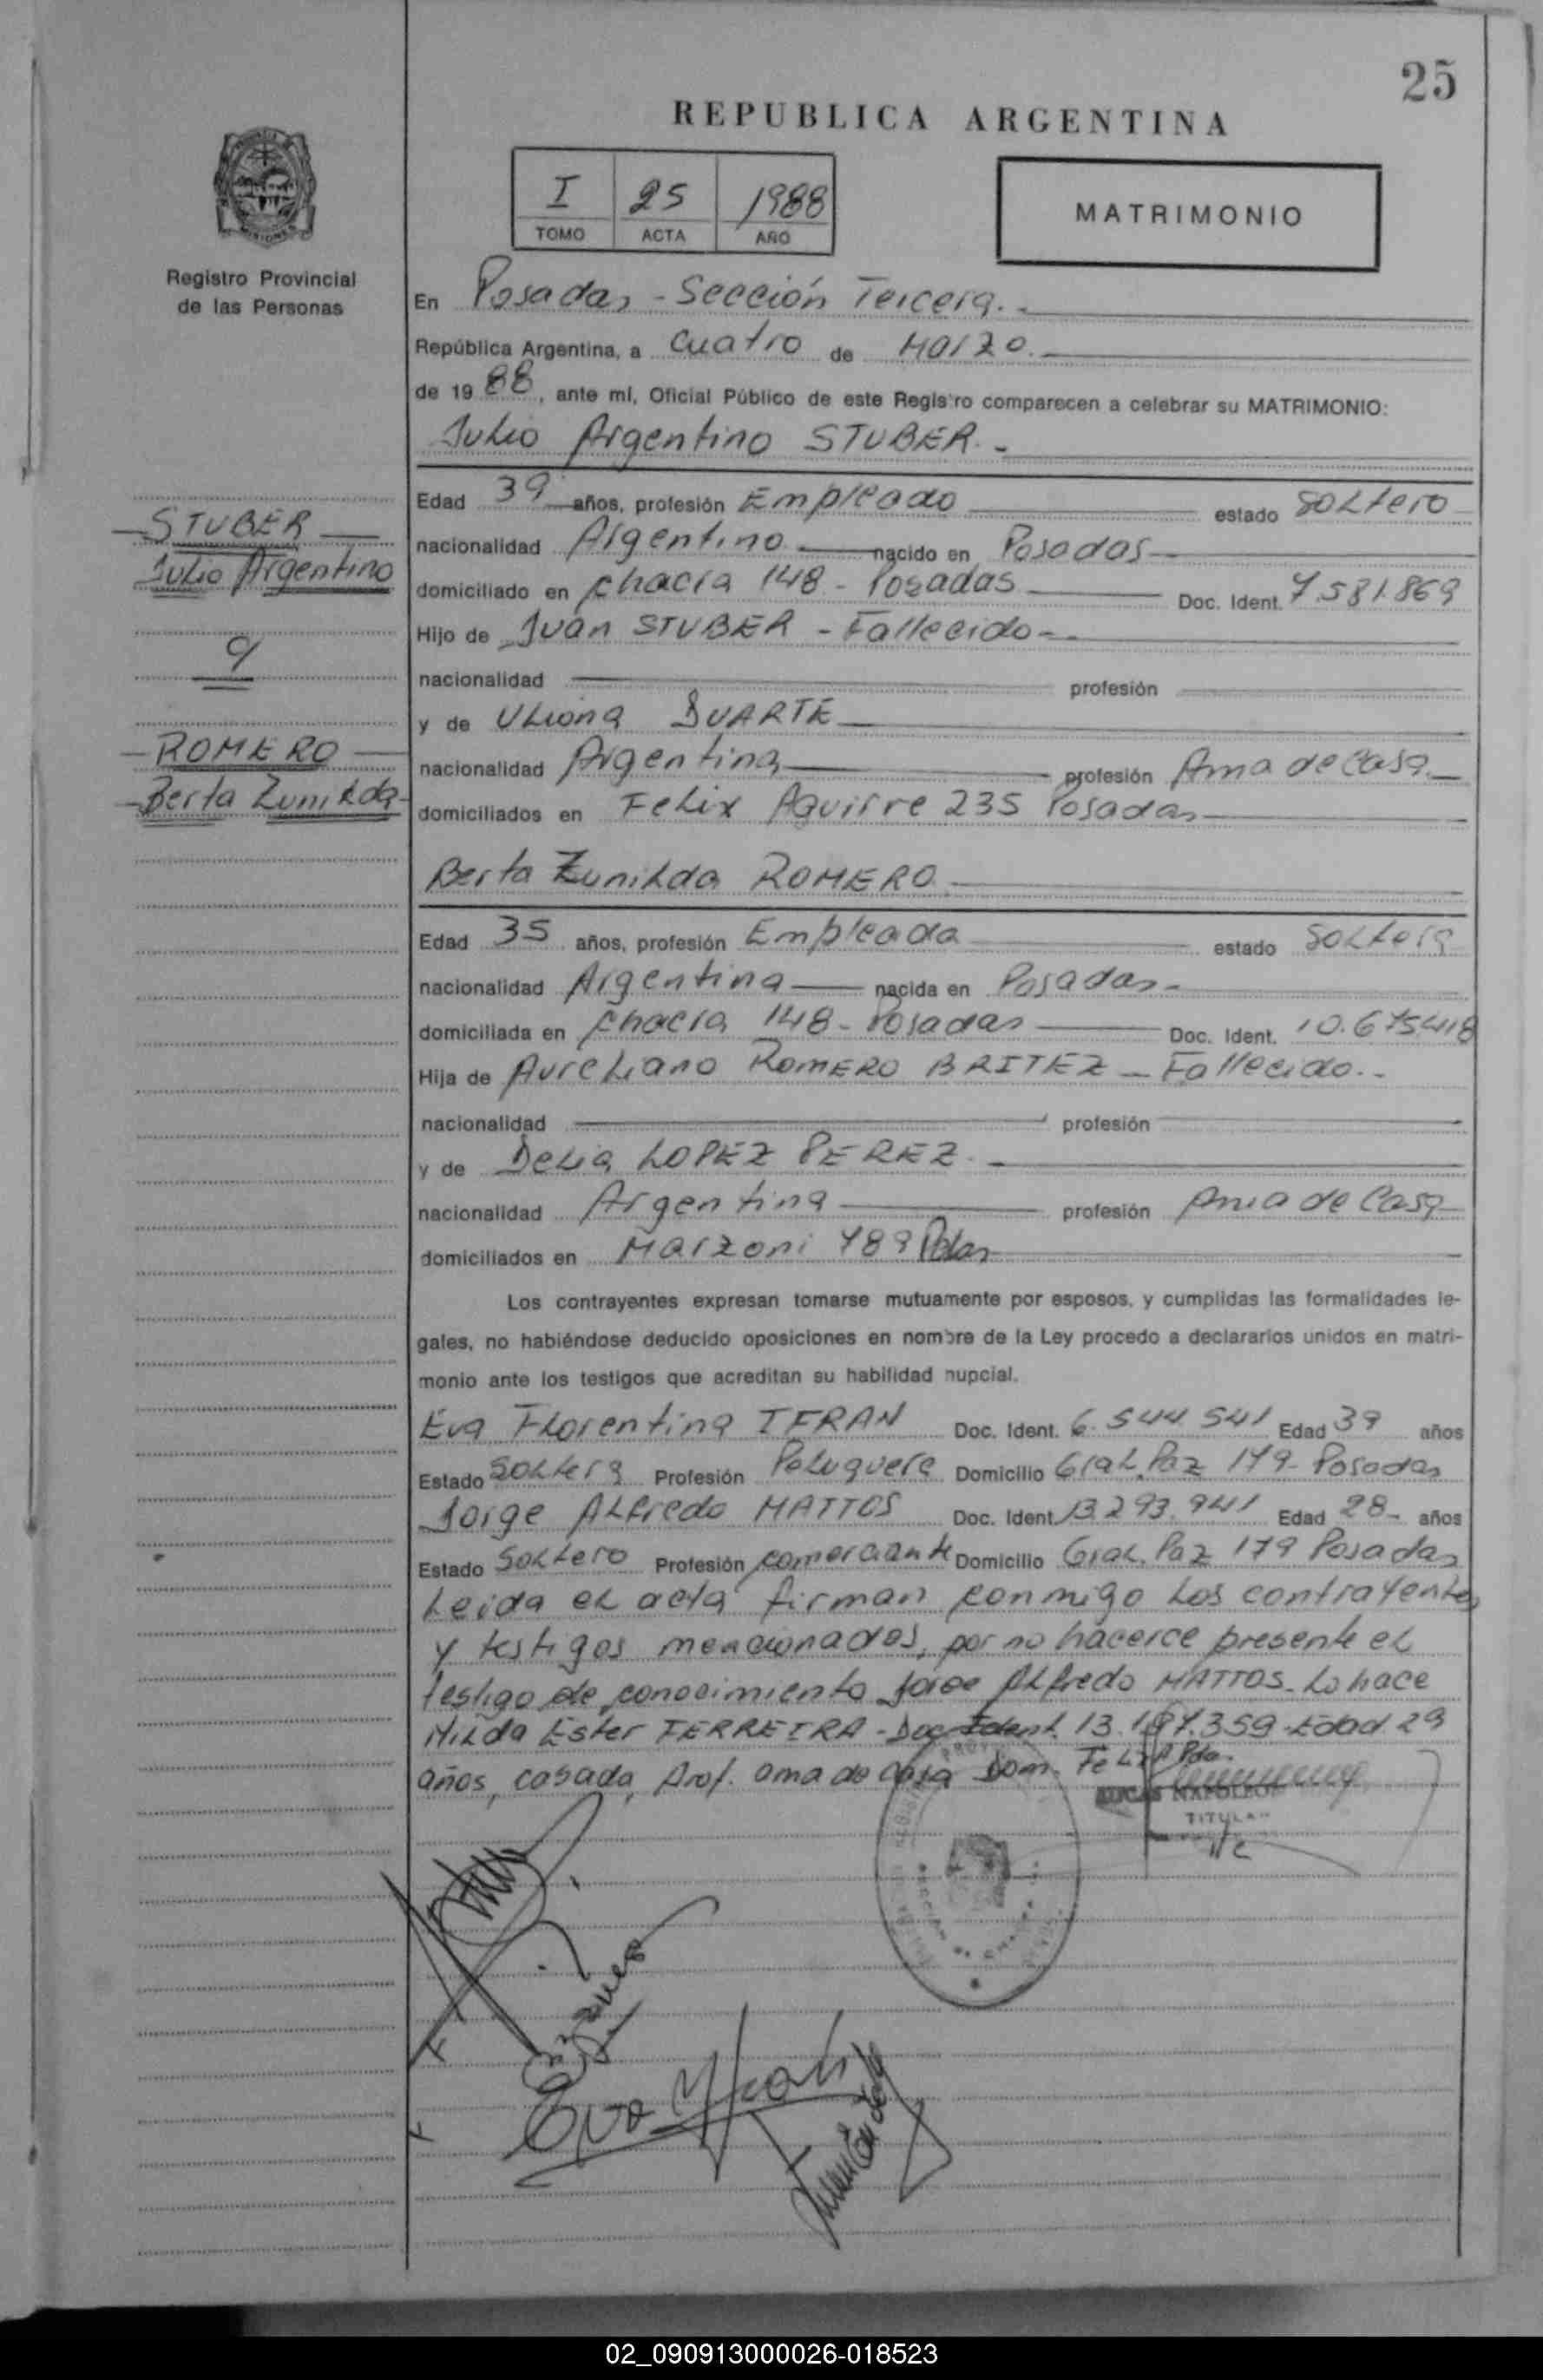 25
REPUBLICA ARGENTINA
I 25 1988
TOMO ACTA AÑO
MATRIMONIO
Registro Provincial
de las Personas
En Posadas - Sección Tercera.-
República Argentina, a cuatro de Marzo.
de 19 88, ante mí, Oficial Público de este Registro comparecen a celebrar su MATRIMONIO:
Julio Argentino STUBER.-
Edad 39 años, profesión Empleado estado Soltero
nacionalidad Argentino nacido en Posadas
domiciliado en chacra 148 - Posadas Doc. Ident. 7.581.869
Hijo de Juan STUBER - Fallecido-.
nacionalidad profesión
y de Uliona DUARTE
nacionalidad Argentina profesión Ama de Casa
domiciliados en Felix Aguirre 235 Posadas
Berta Zunilda ROMERO
Edad 35 años, profesión Empleada estado Soltera
nacionalidad Argentina nacida en Posadas-
domiciliada en chacra 148 - Posadas Doc. Ident. 10.675.418
Hija de Aureliano ROMERO BRITEZ - Fallecido.-
nacionalidad profesión
y de Delia LOPEZ PEREZ.-
nacionalidad Argentina profesión Ama de Casa
domiciliados en Marzoni 789 Pdas
Los contrayentes expresan tomarse mutuamente por esposos, y cumplidas las formalidades le-
gales, no habiéndose deducido oposiciones en nombre de la Ley procedo a declararlos unidos en matri-
monio ante los testigos que acreditan su habilidad nupcial.
Eva Florentina TERAN Doc. Ident. 6.544.541 Edad 39 años
Estado Soltera Profesión Peluquera Domicilio Gral. Paz 179 - Posadas
Jorge Alfredo MATTOS Doc. Ident. 13.293.941 Edad 28- años
Estado Soltero Profesión comerciante Domicilio Gral. Paz 179 Posadas
Leida el acta firman conmigo los contrayentes
y testigos mencionados, por no hacerce presente el
testigo de conocimiento Jorge Alfredo MATTOS - Lo hace
Hilda Ester FERREIRA - Doc Ident. 13.197.359 - Edad 29
años, casada, Prof. ama de casa Dom.
TITULAR
Eva Teran
STUBER
Julio Argentino
c/
ROMERO
Berta Zunilda
02_090913000026-018523